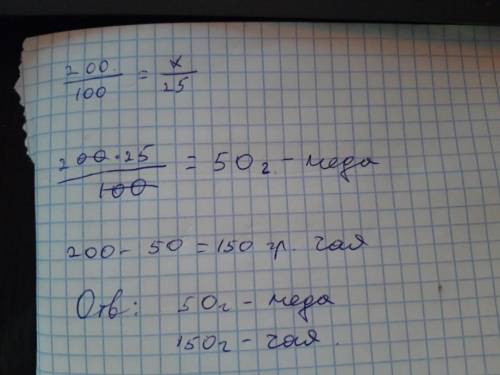 200/100 = x/25
200·25/100 = 50г - меда
200 - 50 = 150 гр. чая
Отв: 50г - меда
150г - чая.